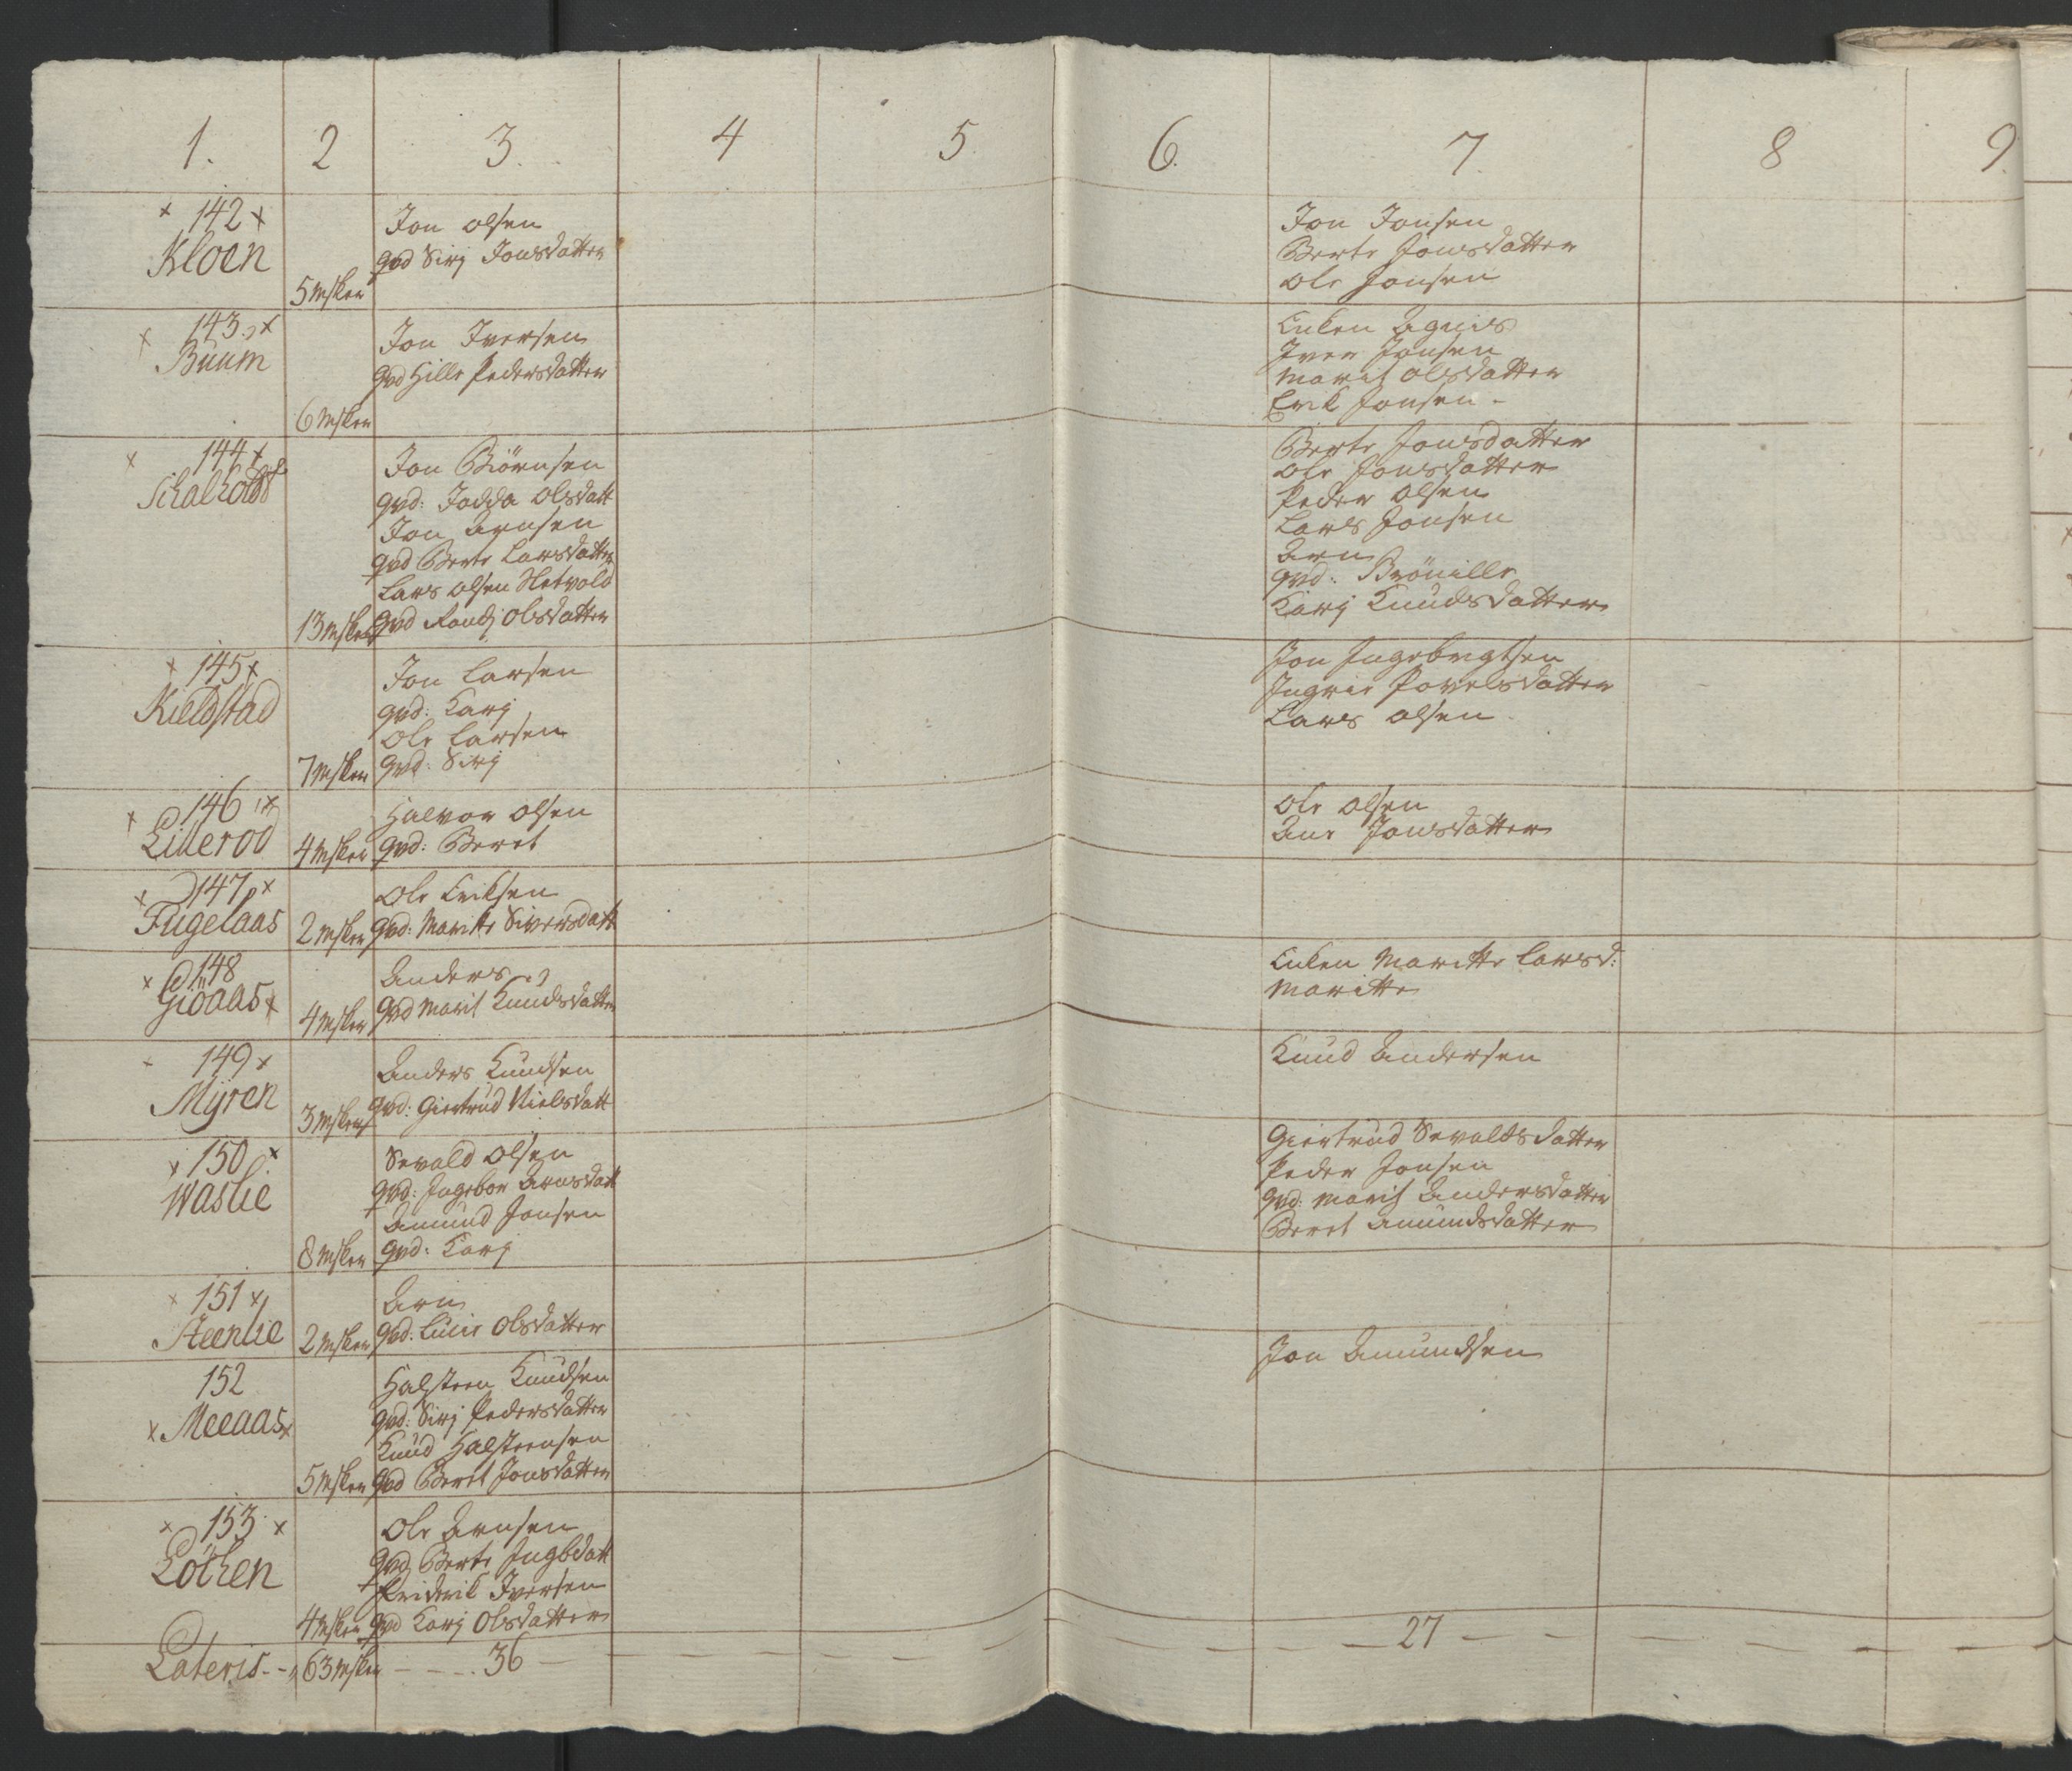 1. 2 3. 4 5 6. 7. 8 9.
142
Kloen
5 Msker
Jon Olsen
qvd Sirj Jonsdatter
Jon Jonsen
Berte Jonsdatter
Ole Jonsen
143
Buum
6 Msker
Jon Iversen
qvd Hille Pedersdatter
Enken Agnis
Iver Jonsen
Marit Olsdatter
Erik Jonsen
144
13 Msker
Jon Biörnsen
qvd: Jodda Olsdatt
Jon Arnsen
qvd Berte Larsdatter
Lars Olsen
qvd Randj Olsdatter
Berte Jonsdatter
Ole Jonsdatter
Peder Olsen
Lars Jonsen
Arn
qvd: Brönille
Karj Knudsdatter
145
Kieldstad
7 Msker
Jon Larsen
qvd: Karj
Ole Larsen
qvd: Sirj
Jon Ingebrigtsen
Ingrie Povelsdatter
Lars Olsen
146
Lillerod
4 Msker
Halvor Olsen
qvd: Beret
Ole Olsen
Ane Jonsdatter
147
Fugelaas
2 Msker
Ole Eriksen
qvd: Maritte Siversdatt
148
Gioaas
4 Msker
Anders
qvd Marit Knudsdatter
Enken Maritte Larsd:
Maritte
149
Myren
3 Msker
Anders Knudsen
qvd: Giertrud Nielsdatt
Knud Andersen
150
Waslie
8 Msker
Sevald Olsen
qvd: Ingebor Arnsdatt
Amund Jonsen
qvd: Karj
Giertrud Sevaldsdatter
Peder Jonsen
qvd: Marit Andersdatter
Beret Amundsdatter
151
Steenlie
2 Msker
Arn
qvd: Lucie Olsdatter
152
Meeaas
5 Msker
Halsteen Knudsen
qvd: Sirj Pedersdatter
Knud Halsteensen
qvd Berit Jonsdatter
Jon Amundsen
153
Löthen
4 Msker
Ole Arnsen
qvd Berte Ingbdatt
Friderik Iversen
qvd Karj Olsdatter
Lateris 63 Msker 36 27